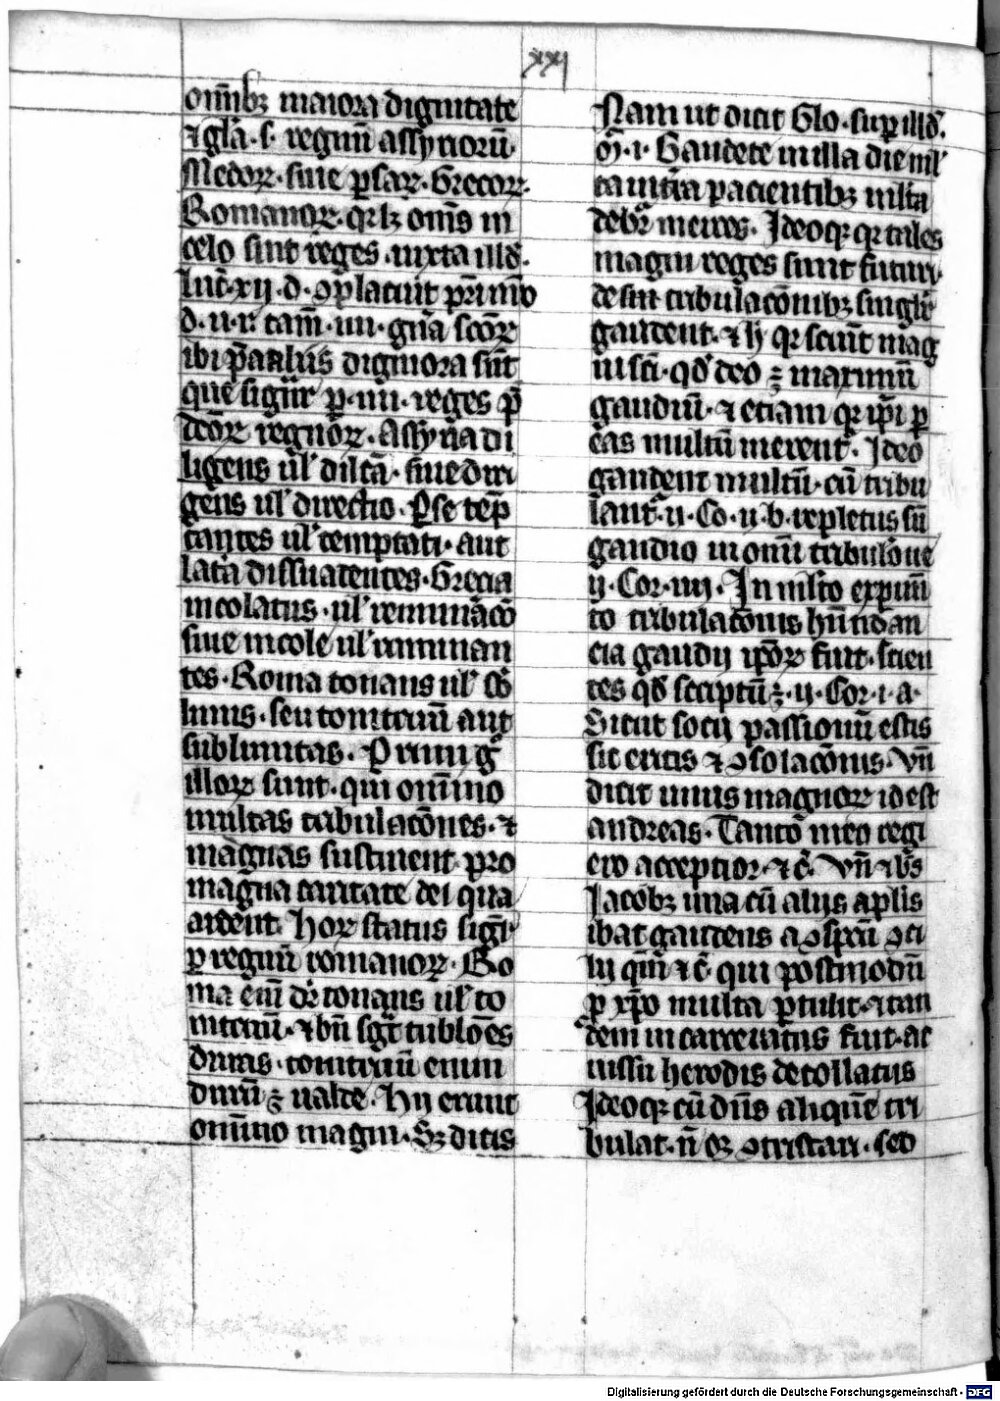 xxj
om̄ibꝫ maiora dignitate
⁊ gl̄a · s · regnū assyriorū
Medoꝝ · siue ꝑsaꝝ · Grecoꝝ ·
Romanoꝝ · qr lꝫ om̄s in
celo sint reges · iuxta illd̓ ·
luc̄ · xij · d · ꝯplacuit pr̄i
d · u · r · tam̄ · iiij · gn̄a sc̄oꝝ
ibi digniora sūt
que sign̄r ꝑ · iiij · reges p̄
dc̄oꝝ regnoꝝ · Assyria di
ligens ul̓ dil̄cā · siue diri
gens ul̓ directio · Perse tēp
tantes ul̓ temptati · aut
lata dissuadentes · Grecia
incolatus · ul̓
siue incole ul̓
tes · Roma tonans ul̓ sb̓
limis · seu tonitruū aut
sublimitas · Primi gͦ
illoꝝ sunt · qui om̄ino
multas tribulac̄ōnes · ⁊
magnas sustinent pro
magna caritate dei qua
ardent · Hoꝝ status sign̄r
ꝑ regnū romanoꝝ · Ro
ma eni͞ dr̄ tonans ul̓ to
nitruū · ⁊ bn̄ sḡt tribl̄oēs
duras · tonitruū enim
durū ē ualde · Hij erunt
om̄ino magni · Sꝫ dicis
Nam ut dicit Glo · suꝑ illd̓ ·
· i · Gaudete in illa die
pacientibꝫ
debr̄ merces · Ideoqꝫ qr tales
magni reges sunt futuri
de suis tribulac̄ōnibꝫ singlr̄
gaudent · ⁊ hͦ qr sciūt mag
ni sc̄i · qd̓ deo ē maximū
gaudiū · ⁊ etiam qr ip̄i ꝑ
eas multū merentͬ · Ideo
gaudent multū · cū tribu
lantͬ · ij · Co · ij · b · repletus sū
gaudio in om̄i tribulōne
ij · Cor · iiij · In ml̓to exꝑim̄
to tribulac̄ōnis habūdan
cia gaudij ip̄oꝝ fuit · scien
tes qd̓ sc̄iptū ē · ij · Cor · i · a ·
Sicut socij passionū estis
sic eritis ⁊ ꝯsolac̄ōnis · Vn̄
dicit unus magnoꝝ id est
andreas · Tanto meo regi
ero acceptior · ⁊ c̄ · Vn̄ ⁊ bt̄s
Jacobꝫ una cū alijs aplis
ibat gaudens a ꝯspc̄u ꝯci
lij qm̄ ⁊ c̄ qui postmodū
ꝑ xp̄o multa ꝑtulit · ⁊ tan
dem incarceratus fuit · ac
iussu herodis decollatus
Ideoqꝫ cū dn̄s aliquē tri
bulat · n̄ oꝫ ꝯtristari · sed
Digitalisierung gefördert durch die Deutsche Forschungsgemeinschaft - DFG